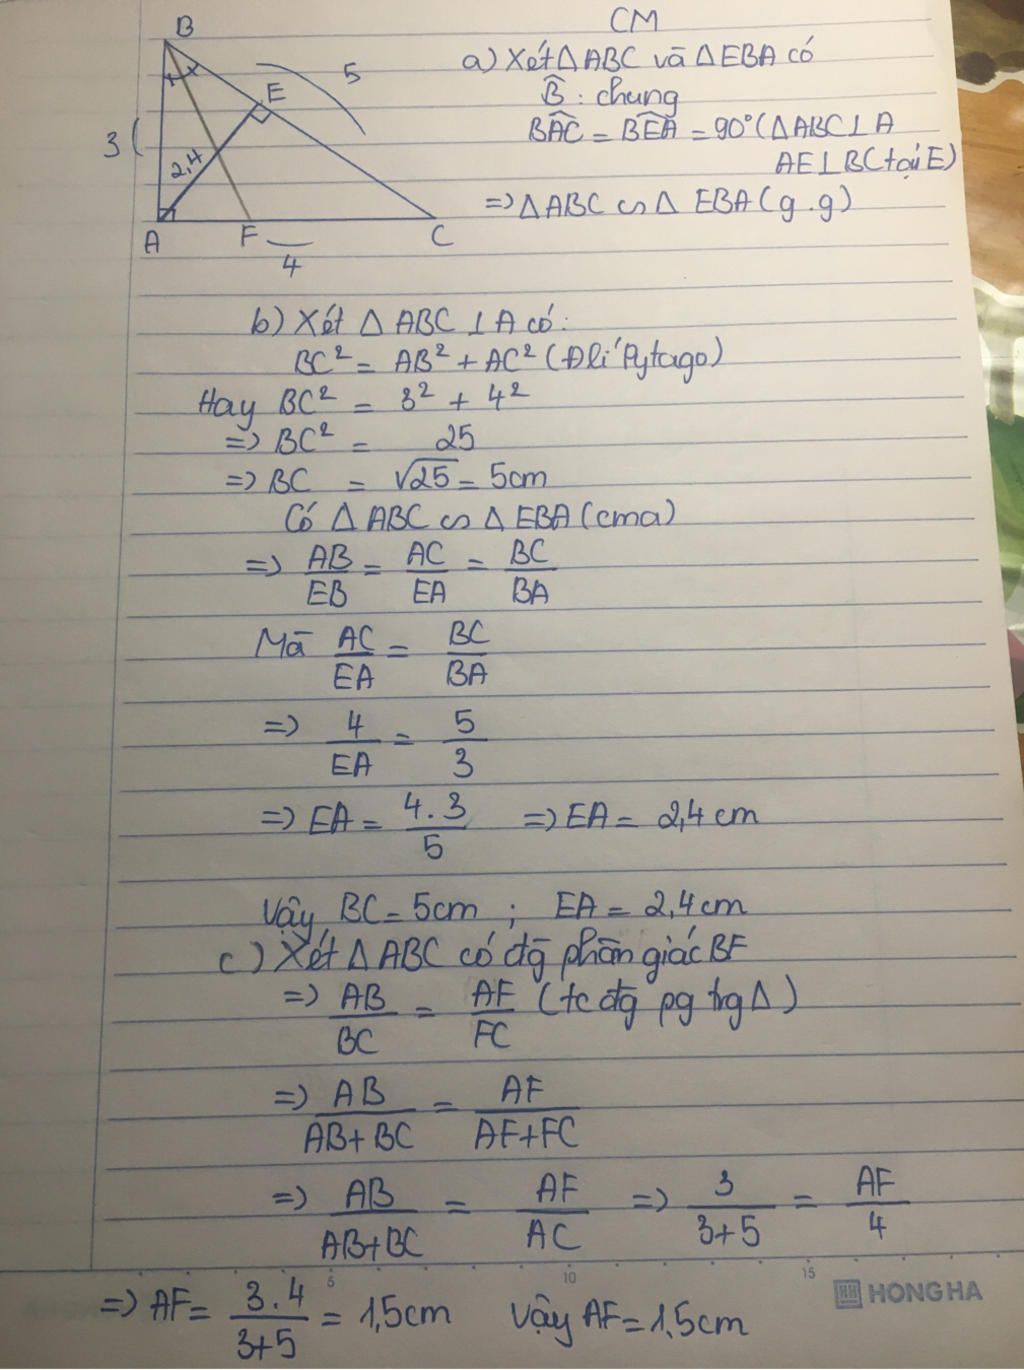 CM
B
5
E
3
2,4
A
F
C
4
a) Xét ΔABC và ΔEBA có
B̂ : chung
BÂC = BÊA = 90° (ΔABC ⊥ A
AE ⊥ BC tại E)
=> ΔABC ∽ Δ EBA (g.g)
b) Xét Δ ABC ⊥ A có:
BC² = AB² + AC² (Đlí Pytago)
Hay BC² = 3² + 4²
=> BC² = 25
=> BC = √25 = 5cm
Có Δ ABC ∽ Δ EBA (cma)
=> AB/EB = AC/EA = BC/BA
Mà AC/EA = BC/BA
=> 4/EA = 5/3
=> EA = 4.3/5 => EA = 2,4 cm
Vậy BC = 5cm ; EA = 2,4 cm
c) Xét Δ ABC có đg phân giác BF
=> AB/BC = AF/FC (tc đg pg trg Δ)
=> AB/AB+BC = AF/AF+FC
=> AB/AB+BC = AF/AC => 3/3+5 = AF/4
5 10 15
HH HONG HA
=> AF = 3.4/3+5 = 1,5cm Vậy AF = 1,5cm